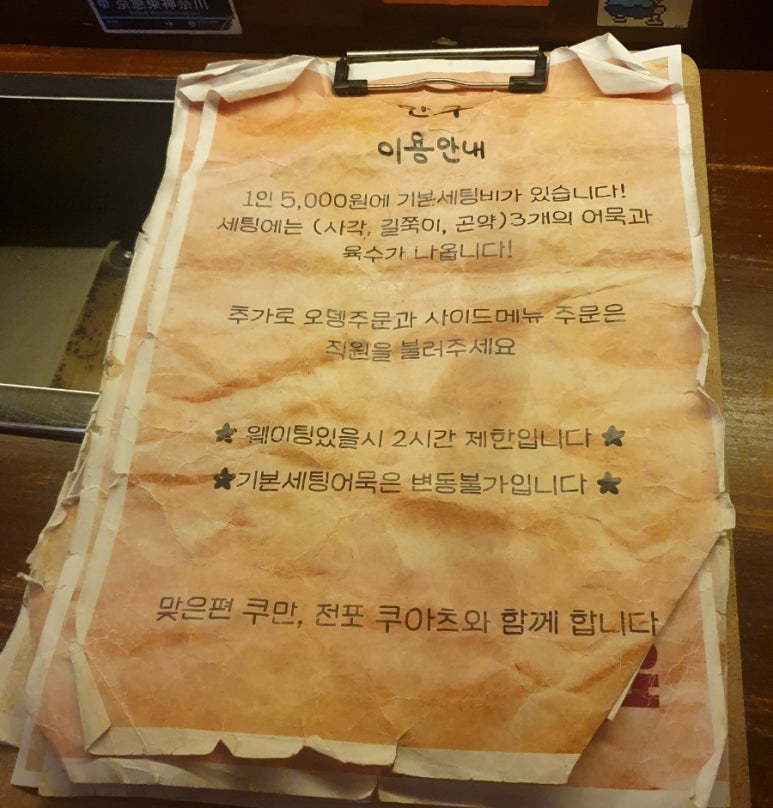 京急東神奈川
만쿠
이용안내
1인 5,000원에 기본세팅비가 있습니다!
세팅에는 (사각, 길쭉이, 곤약)3개의 어묵과
육수가 나옵니다!
추가로 오뎅주문과 사이드메뉴 주문은
직원을 불러주세요
★ 웨이팅있을시 2시간 제한입니다 ★
★기본세팅어묵은 변동불가입니다 ★
맞은편 쿠만, 전포 쿠아츠와 함께 합니다